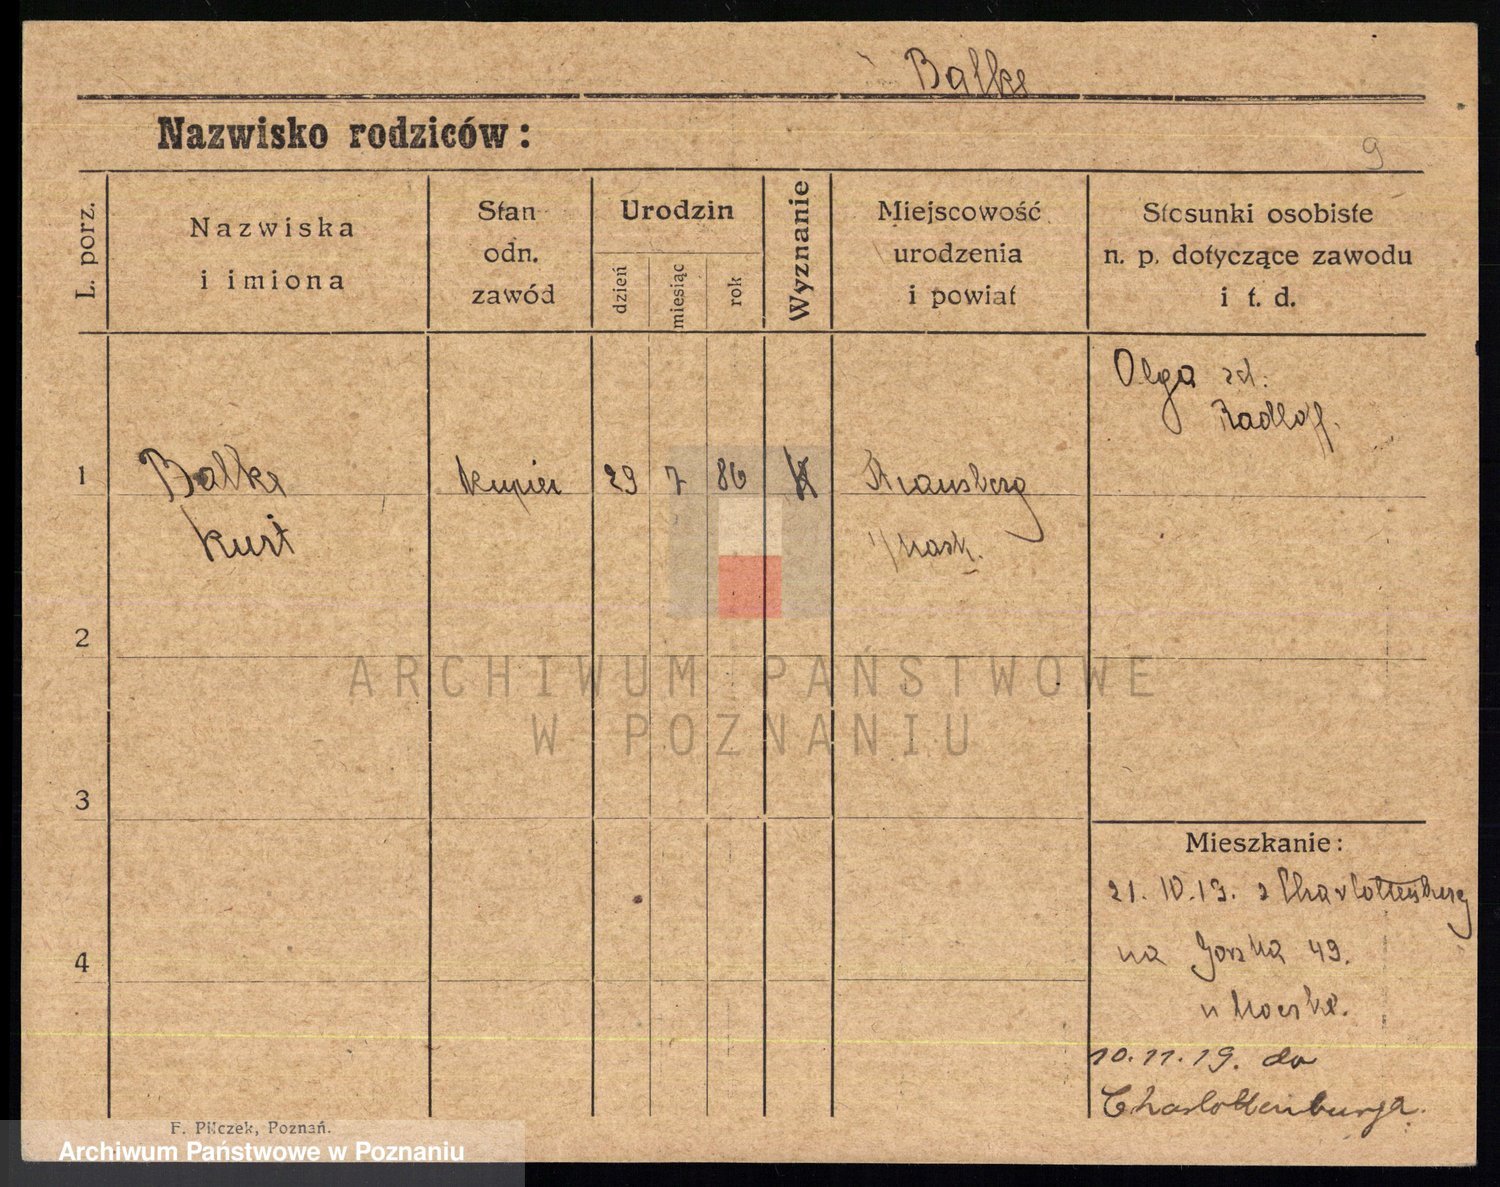 Balke
Nazwisko rodziców:
9
L. porz.
Nazwiska
i imiona
Stan
odn.
zawód
Urodzin
dzień
miesiąc
rok
Wyznanie
Miejscowość
urodzenia
i powiat
Stosunki osobiste
n. p. dotyczące zawodu
i t. d.
Olga
Radloff.
1
Balke
Kurt
kupiec
29
7
86
2
3
4
Mieszkanie:
21. 10. 19. z Charlottenburg
na Gorska 49.
10. 11. 19. do
Charlottenburga.
F. Pilczek, Poznań.
ARCHIWUM PAŃSTWOWE
W POZNANIU
Archiwum Państwowe w Poznaniu